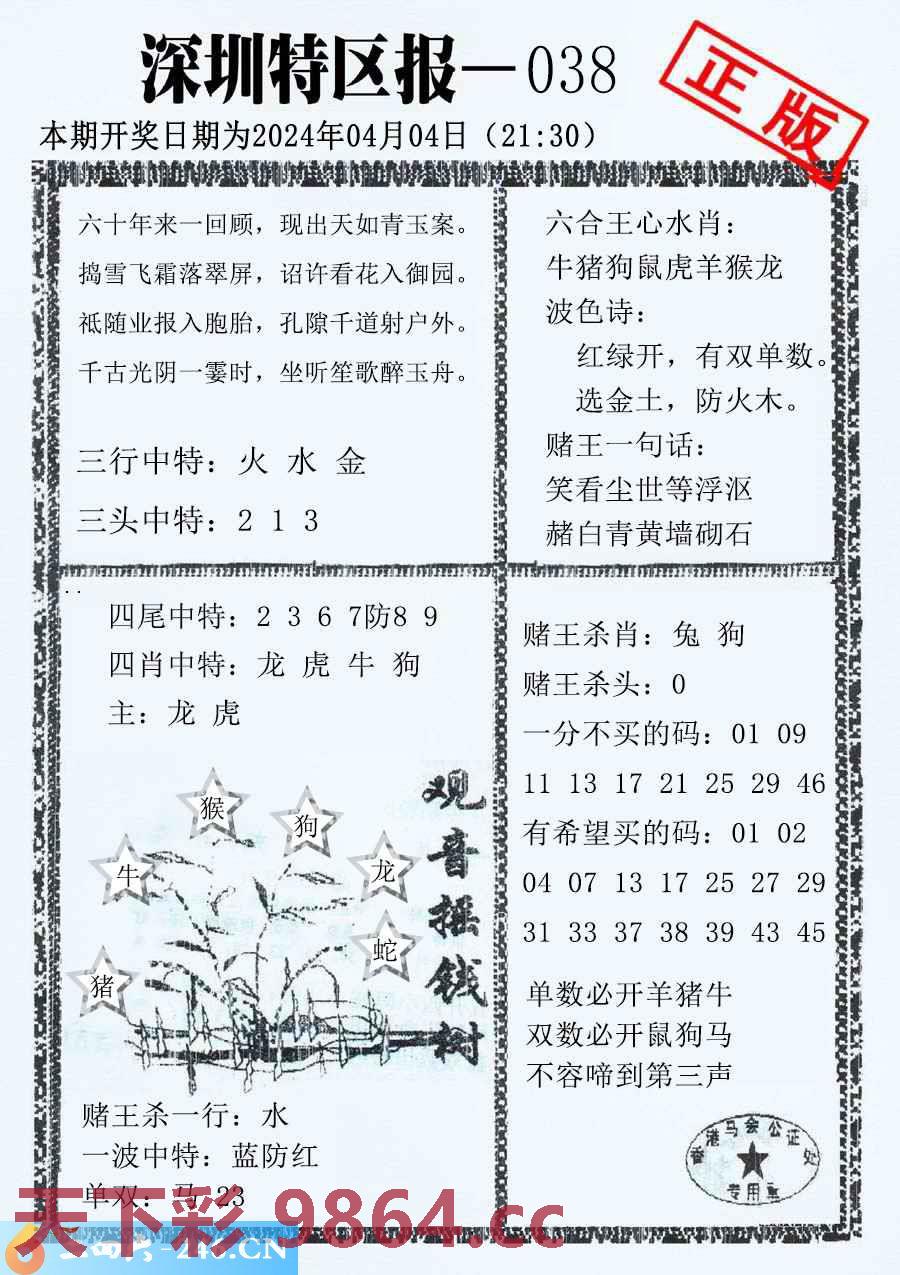 深圳特区报—038
正版
本期开奖日期为2024年04月04日（21:30）
六十年来一回顾，现出天如青玉案。
捣雪飞霜落翠屏，诏许看花入御园。
祗随业报入胞胎，孔隙千道射户外。
千古光阴一霎时，坐听笙歌醉玉舟。
三行中特：火 水 金
三头中特：2 1 3
六合王心水肖：
牛猪狗鼠虎羊猴龙
波色诗：
红绿开，有双单数。
选金土，防火木。
赌王一句话：
笑看尘世等浮沤
赭白青黄墙砌石
四尾中特：2 3 6 7防8 9
四肖中特：龙 虎 牛 狗
主：龙 虎
猴
狗
牛
龙
蛇
猪
观音摇钱树
赌王杀一行：水
一波中特：蓝防红
单双：马 23
赌王杀肖：兔 狗
赌王杀头：0
一分不买的码：01 09
11 13 17 21 25 29 46
有希望买的码：01 02
04 07 13 17 25 27 29
31 33 37 38 39 43 45
单数必开羊猪牛
双数必开鼠狗马
不容啼到第三声
香港马会公证处
专用章
天下彩 9864.cc
-246.CN